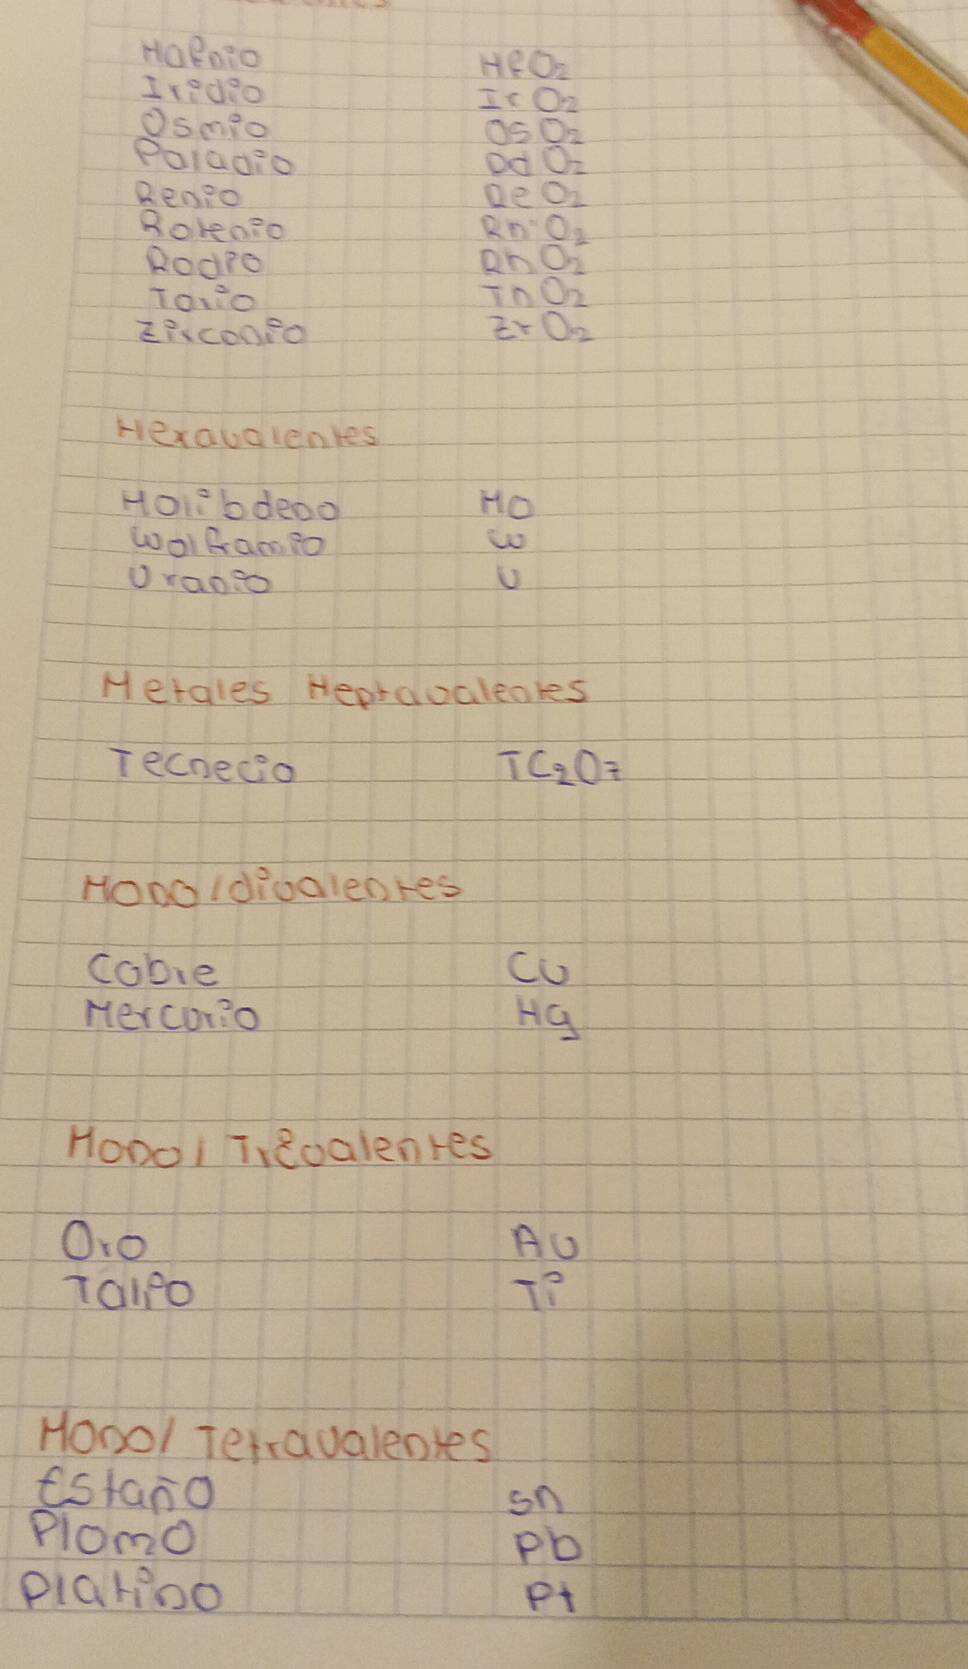 Hafnio HfO2
Iridio IrO2
Osmio OsO2
Paladio PdO2
Renio ReO2
Rotenio RnO2
Rodio RhO2
Torio ThO2
Zirconio ZrO2
Hexavalentes
Molibdeno MO
Wolframio W
Uranio U
Metales Heptavalentes
Tecnecio TC2O7
Mono/divalentes
Cobre Cu
Mercurio Hg
Mono/Trivalentes
Oro Au
Talio Ti
Mono/Tetravalentes
Estaño Sn
Plomo Pb
Platino Pt